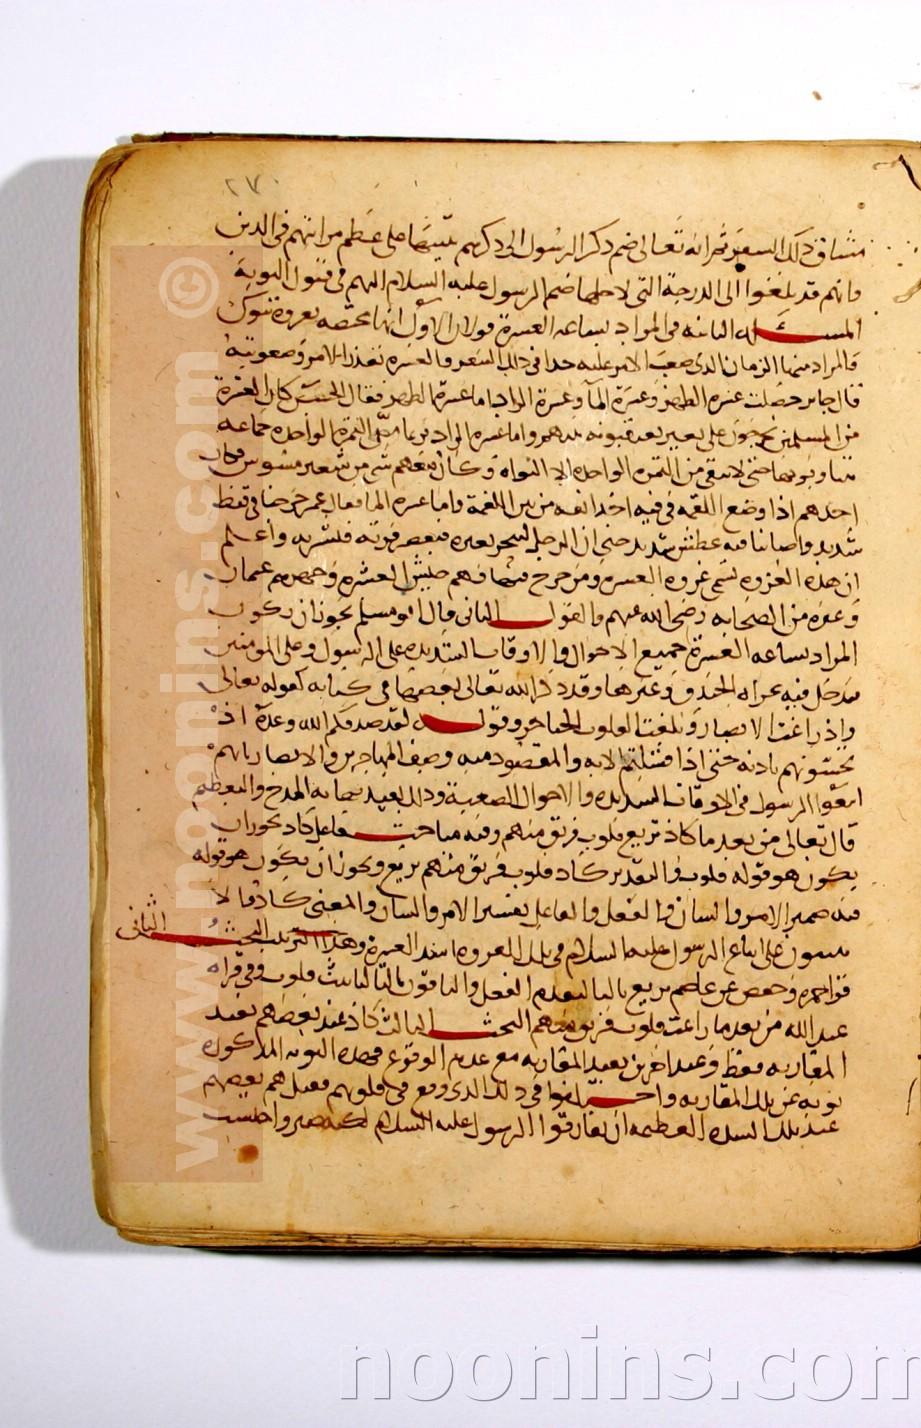 ٢٧٠
مشاق ذلك السفر ثم انه تعالى ضم ذكر الرسول الى ذكرهم تنبيها على عظم مراتبهم في الدين
وانهم قد بلغوا الى الدرجة التي لاجلها ضم الرسول عليه السلام اليهم في قبول التوبة
المسئله الثانيه في المراد بساعه العسرة قولان الاول انها مختصه بغزوة تبوك
والمراد منها الزمان الذي صعب الامر عليهم جدا في ذلك السفر والعسره تعذر الامر وصعوبته
قال جابر حصلت عسرة الظهر وعسرة المآ وعسرة الزاد اما عسرة الظهر فقال الحسن كان العشرة
من المسلمين يخرجون على بعير يعتقبونه بينهم واما عسره الزاد فربما مصّ التمرة الواحده جماعه
يتناوبونها حتى لا يبقى من التمره الواحده الا النواه وكان معهم شي من شعير مسوس فكان
احدهم اذا وضع اللقمه في فيه اخذ انفه من نتن اللقمة واما عسره الما فقال عمر خرجنا في قيظ
شديد واصابنا فيه عطش شديد حتى ان الرجل لينحر بعيره فيعصر فرثه فيشربه واعلم
ان هذه الغزوه تسمى غزوه العسره ومن خرج فيها فهم جيش العسره وجهزهم عثمان
وغيره من الصحابه رضي الله عنهم والقول الثاني قال ابو مسلم يجوز ان يكون
المراد بساعه العسرة جميع الاحوال والاوقات الشديده على الرسول وعلى المومنين
فيدخل فيه غزاه الخندق وغيرها وقد ذكر الله تعالى بعضها في كتابه كقوله تعالى
واذ زاغت الابصار وبلغت القلوب الحناجر وقوله لقد صدقكم الله وعده اذ
تحسونهم باذنه حتى اذا فشلتم الايه والمقصود منه وصف المهاجرين والانصار بانهم
اتبعوا الرسول في الاوقات الشديده والاحوال الصعبة وذلك يفيد نهايه المدح والتعظيم
قال تعالى من بعد ما كاد تزيغ قلوب فريق منهم وفيه مباحث فاعل كاد يجوز ان
يكون هو قوله قلوب والتقدير كاد قلوب فريق منهم تزيغ ويجوز ان يكون هو قوله
فيه ضمير الامر والشان والفعل والفاعل تفسير الامر والشان والمعنى كادوا لا
يثبتون على اتباع الرسول عليه السلام في تلك الغزوه لشدة العسرة وهذا الترتيب البحث الثاني
قرا حمزه وحفص عن عاصم يزيغ باليا لتقدم الفعل والباقون بالتا لتانيث قلوب وفي قراه
عبد الله من بعد ما زاغت قلوب فريق منهم البحث الثالث كاد عند بعضهم يفيد
المقاربه فقط وعند اخرين يفيد المقاربه مع عدم الوقوع فهذه التوبه المذكوره
توبه عن تلك المقاربه واختلفوا في ذلك الذي وقع في قلوبهم فقيل هم بعضهم
عند تلك الشده العظيمه ان يفارقوا الرسول عليه السلام لكنه صبر واحتسب
© www.noonins.com
noonins.com